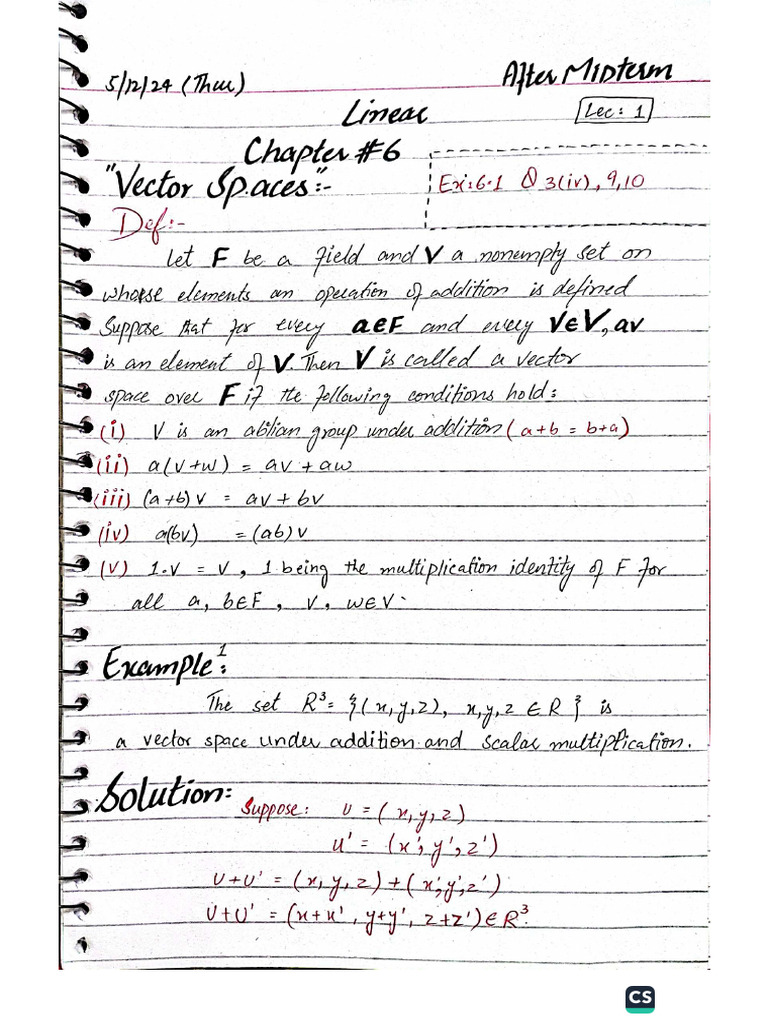 5/12/24 (Thur)
After Midterm
Linear
Lec: 1
Chapter #6
"Vector Spaces":-
Ex: 6.1 Q 3(iv), 9, 10
Def:-
Let F be a field and V a nonempty set on
whose elements an operation of addition is defined
Suppose that for every a∈F and every v∈V, av
is an element of V. Then V is called a vector
space over F if the following conditions hold:
(i) V is an ablian group under addition (a+b = b+a)
(ii) a(v+w) = av + aw
(iii) (a+b)v = av + bv
(iv) a(bv) = (ab)v
(v) 1.v = v, 1 being the multiplication identity of F for
all a, b∈F, v, w∈V.
Example 1:
The set R³ = {(x,y,z), x,y,z ∈ R} is
a vector space under addition and scalar multiplication.
Solution:
Suppose: u = (x,y,z)
u' = (x', y', z')
u+u' = (x,y,z) + (x',y',z')
u+u' = (x+x', y+y', z+z') ∈ R³.
CS